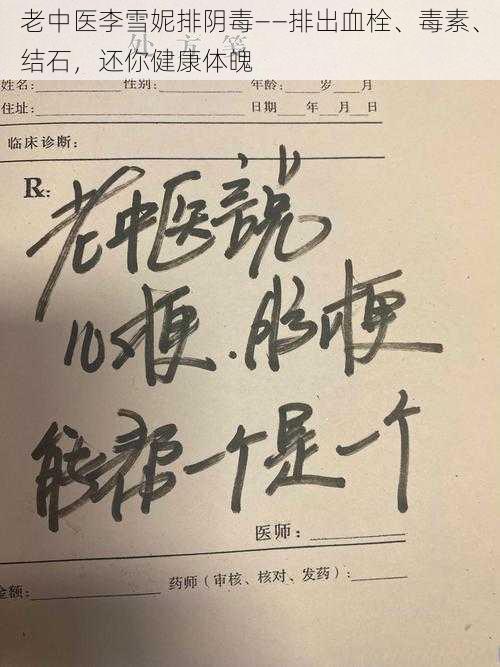 老中医李雪妮排阴毒——排出血栓、毒素、
结石，还你健康体魄
处方笺
姓名： 性别： 年龄： 岁 月
住址： 日期 年 月 日
临床诊断：
R:
老中医说
心梗.脑梗
能帮一个是一个
医师：
金额： 药师（审核、核对、发药）：